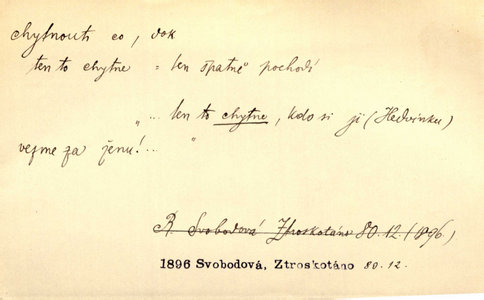 chytnouti co, dok
ten to chytne = ten špatně pochodí
„... ten to chytne, kdo si ji (Hedvinku)
vezme za ženu!... "
R. Svobodová Ztroskotáno 80.12. (1896.)
1896 Svobodová, Ztroskotáno 80.12.